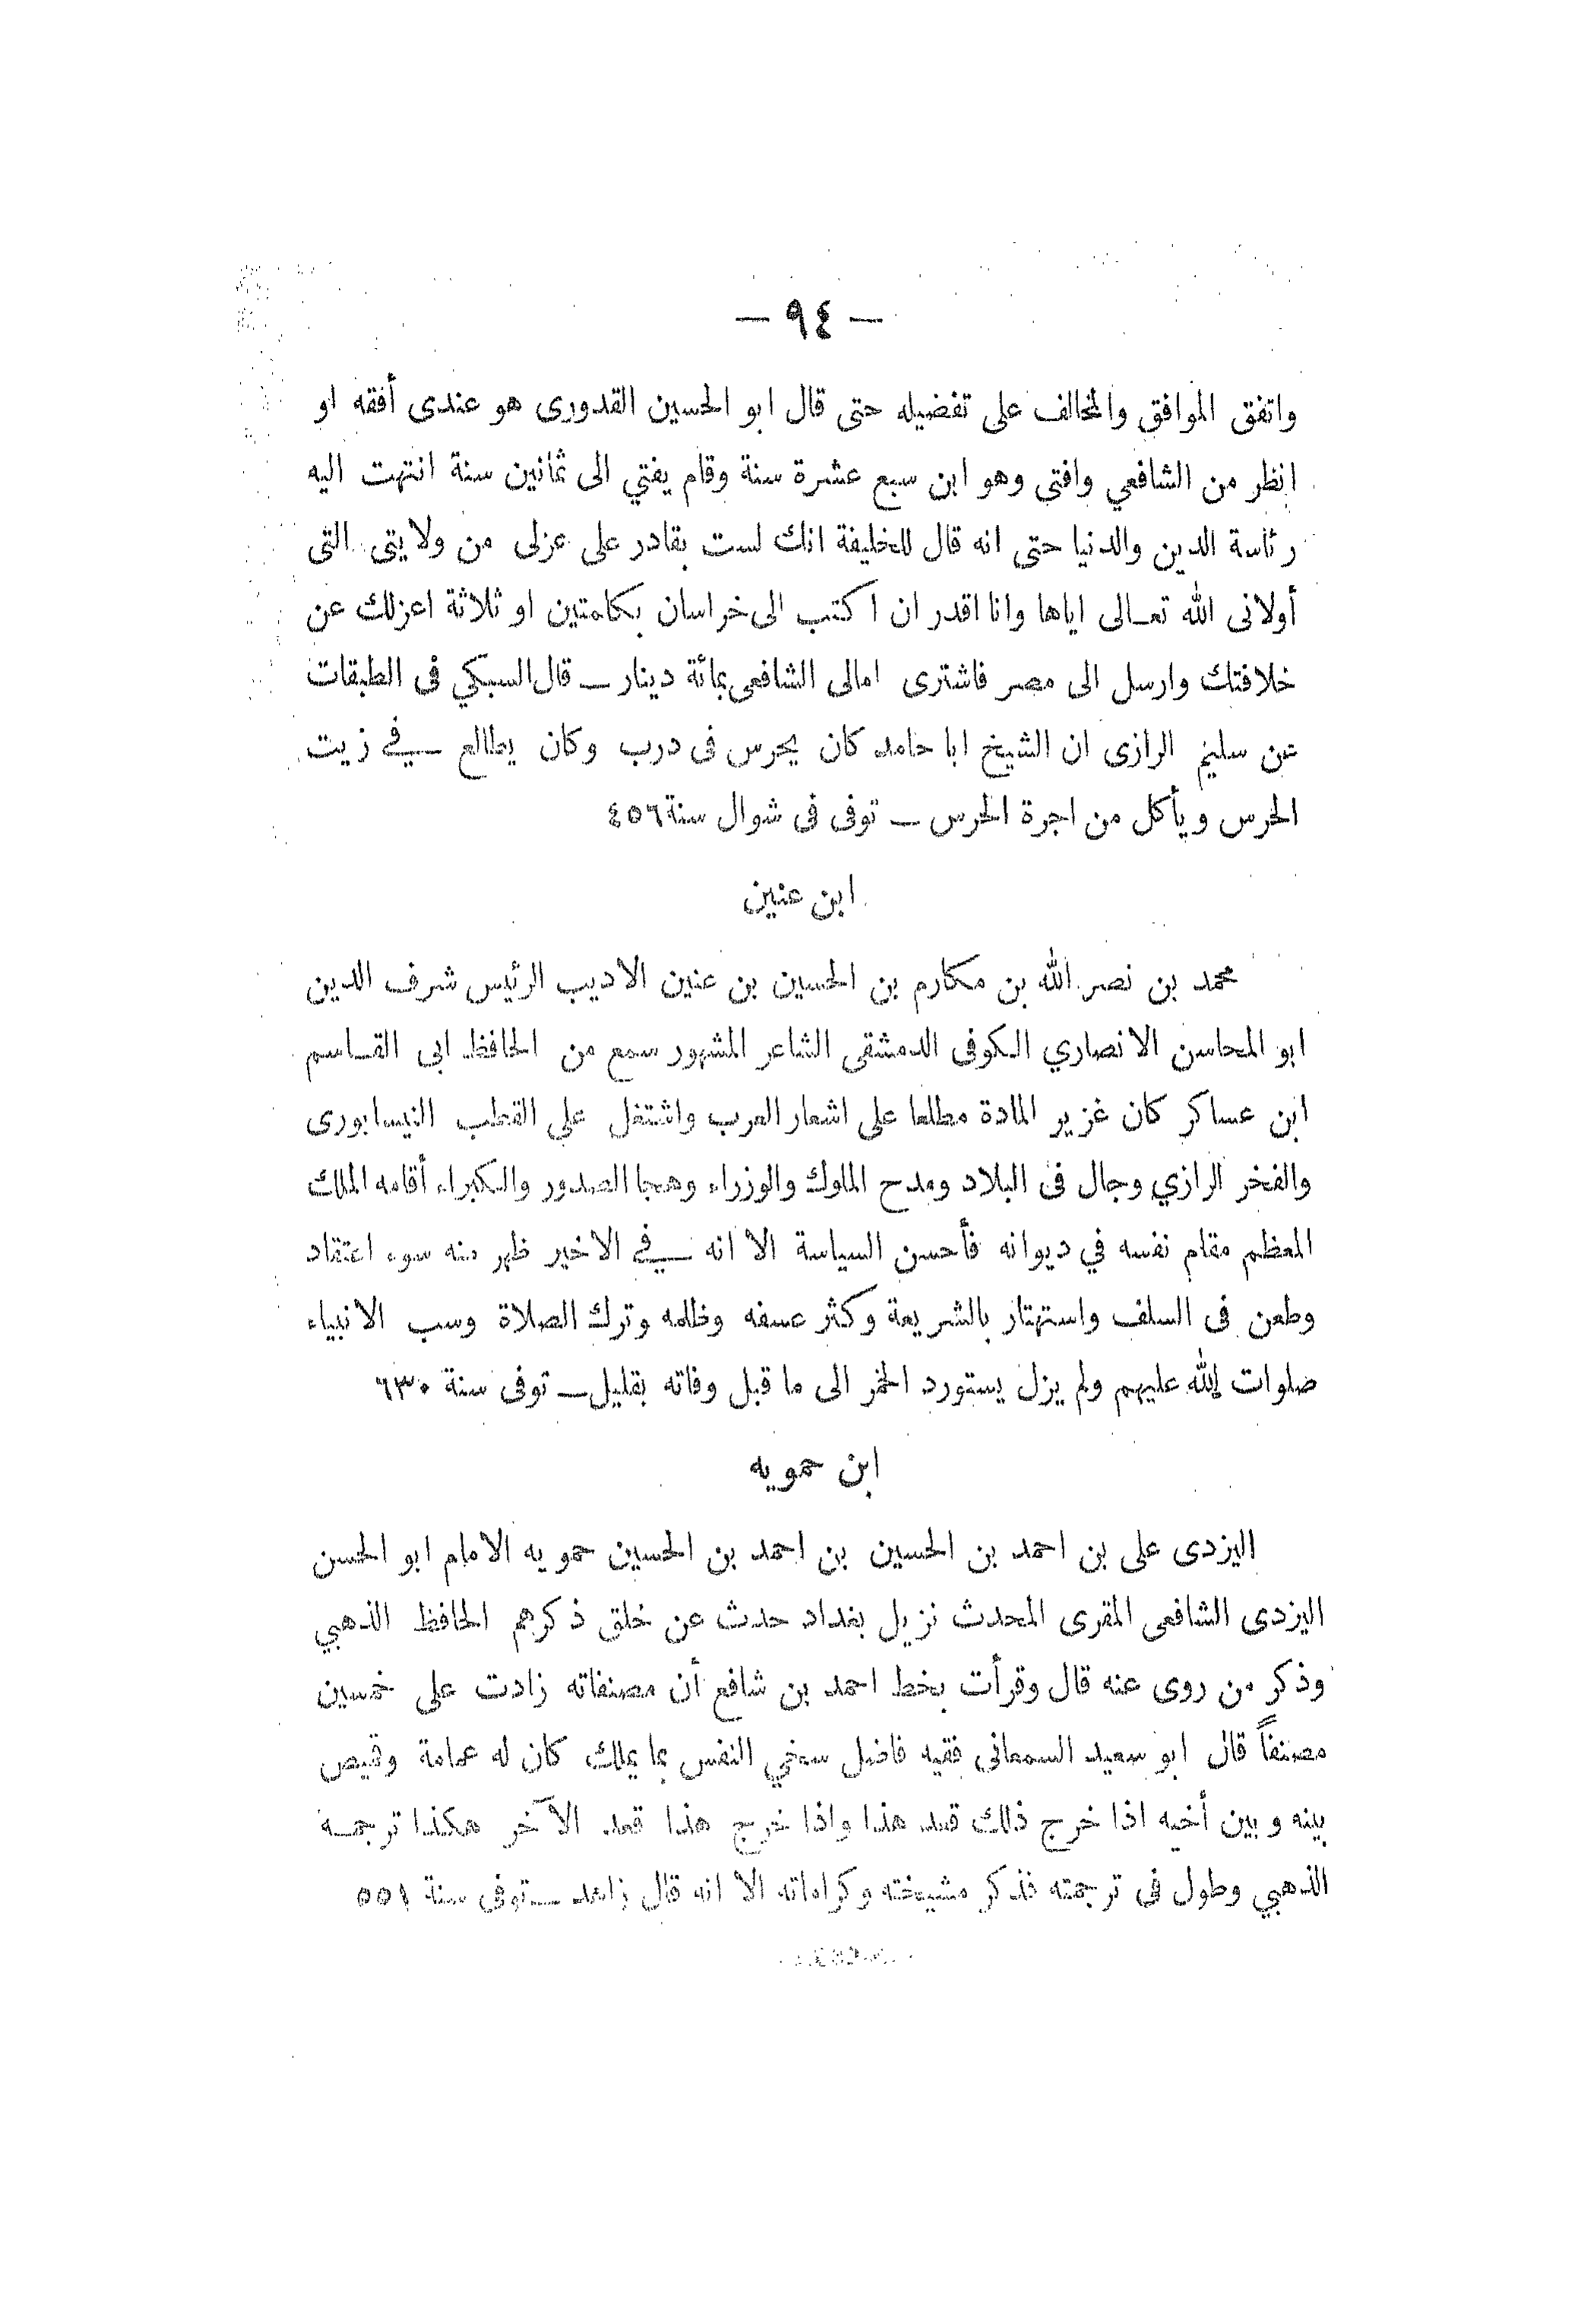 — ٩٤ —
واتفق الموافق والمخالف على تفضيله حتى قال ابو الحسين القدورى هو عندى أفقه او
انظر من الشافعي وافتى وهو ابن سبع عشرة سنة وقام يفتي الى ثمانين سنة انتهت اليه
رئاسة الدين والدنيا حتى انه قال للخليفة انك لست بقادر على عزلى من ولايتى التى
أولانى الله تعالى اياها وانا اقدر ان اكتب الى خراسان بكلمتين او ثلاثة اعزلك عن
خلافتك وارسل الى مصر فاشترى امالى الشافعى بمائة دينار — قال السبكي فى الطبقات
عن سليم الرازى ان الشيخ ابا حامد كان يحرس فى درب وكان يطالع في زيت
الحرس ويأكل من اجرة الحرس — توفى فى شوال سنة ٤٥٦
ابن عنين
محمد بن نصر الله بن مكارم بن الحسين بن عنين الاديب الرئيس شرف الدين
ابو المحاسن الانصاري الكوفى الدمشقى الشاعر المشهور سمع من الحافظ ابى القاسم
ابن عساكر كان غزير المادة مطلعا على اشعار العرب واشتغل على القطب النيسابورى
والفخر الرازي وجال فى البلاد ومدح الملوك والوزراء وهجا الصدور والكبراء أقامه الملك
المعظم مقام نفسه في ديوانه فأحسن السياسة الا انه في الاخير ظهر منه سوء اعتقاد
وطعن فى السلف واستهتار بالشريعة وكثر عسفه وظلمه وترك الصلاة وسب الانبياء
صلوات الله عليهم ولم يزل يستورد الخمر الى ما قبل وفاته بقليل — توفى سنة ٦٣٠
ابن حمويه
اليزدى على بن احمد بن الحسين بن احمد بن الحسين حمويه الامام ابو الحسن
اليزدى الشافعى المقرى المحدث نزيل بغداد حدث عن خلق ذكرهم الحافظ الذهبي
وذكر من روى عنه قال وقرأت بخط احمد بن شافع أن مصنفاته زادت على خمسين
مصنفاً قال ابو سعيد السمعانى فقيه فاضل سخي النفس بما يملك كان له عمامة وقميص
بينه وبين أخيه اذا خرج ذلك قعد هذا واذا خرج هذا قعد الآخر هكذا ترجمه
الذهبي وطول فى ترجمته فذكر مشيخته وكراماته الا انه قال زاهد — توفى سنة ٥٥١